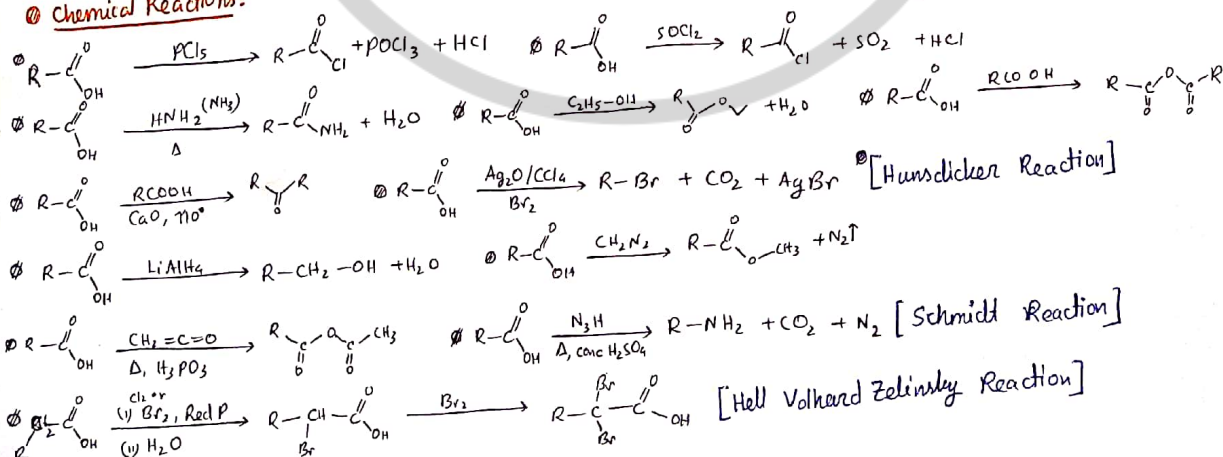 Chemical Reactions:
R-C(=O)OH PCl5 → R-C(=O)Cl + POCl3 + HCl R-C(=O)OH SOCl2 → R-C(=O)Cl + SO2 + HCl
R-C(=O)OH HNH2 (NH3) Δ → R-C(=O)NH2 + H2O R-C(=O)OH C2H5-OH → R O O + H2O R-C(=O)OH RCOOH → R-C(=O)-O-C(=O)-R
R-C(=O)OH RCOOH CaO, 110° → R R O R-C(=O)OH Ag2O/CCl4 Br2 → R-Br + CO2 + AgBr [Hunsdicker Reaction]
R-C(=O)OH LiAlH4 → R-CH2-OH + H2O R-C(=O)OH CH2N2 → R-C(=O)O-CH3 + N2↑
R-C(=O)OH CH2=C=O Δ, H3PO3 → R-C(=O)-O-C(=O)-CH3 R-C(=O)OH N3H Δ, conc H2SO4 → R-NH2 + CO2 + N2 [Schmidt Reaction]
R CH2 C(=O)OH Cl2 or (i) Br2, Red P (ii) H2O → R-CH(Br)-C(=O)OH Br2 → R-C(Br)(Br)-C(=O)-OH [Hell Volhard Zelinsky Reaction]